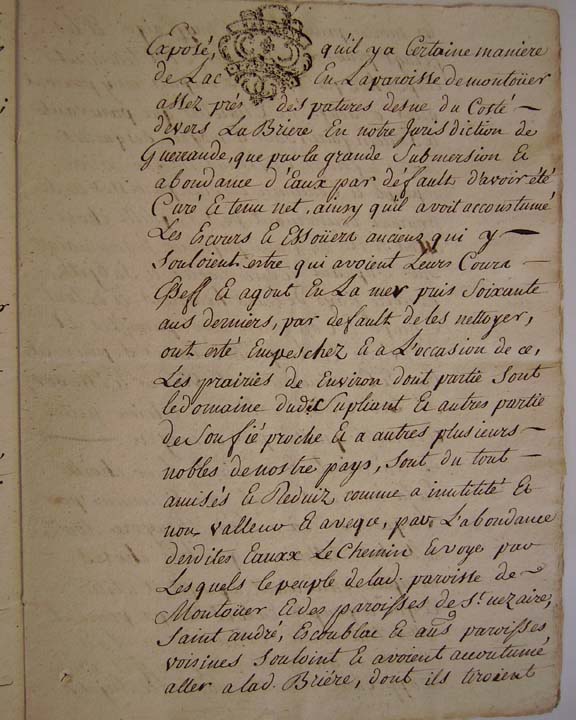 Exposé, qu'il y a Certaine maniere
de Lac En La paroisse de montoüer
assez prés des patures desne du Costé
devers La Briere En notre Jurisdiction de
Guerrande, que par la grande Submersion Et
abondance d'Eaux par défault d'avoir été
Curé Et tenu net, ainsy qu'il avoit accoustumé
Les Ecours Et Essoüers anciens qui y
Souloient estre qui avoient Leurs Cours
Et agout En La mer puis Soixante
ans derniers, par default de les nettoyer,
ont esté Empeschez Et a L'occasion de ce,
Les prairies de Environ dont partie Sont
le domaine dudit Supliant Et autres partie
de Son fié proche Et a autres plusieurs
nobles de nostre pays, Sont du tout
amisés Et Reduiz comme a inutilité Et
non valleur Et aveque, par L'abondance
desdites Eauxx Le Chemin Et voye par
Lesquels le peuple de lad. paroisse de
Montoüer Et des paroisses de St. nezaire,
Saint andré, Escoublac Et aus paroisses
voisines Souloint Et avoient accoutumé
aller a lad. Briére, dont ils tiroient